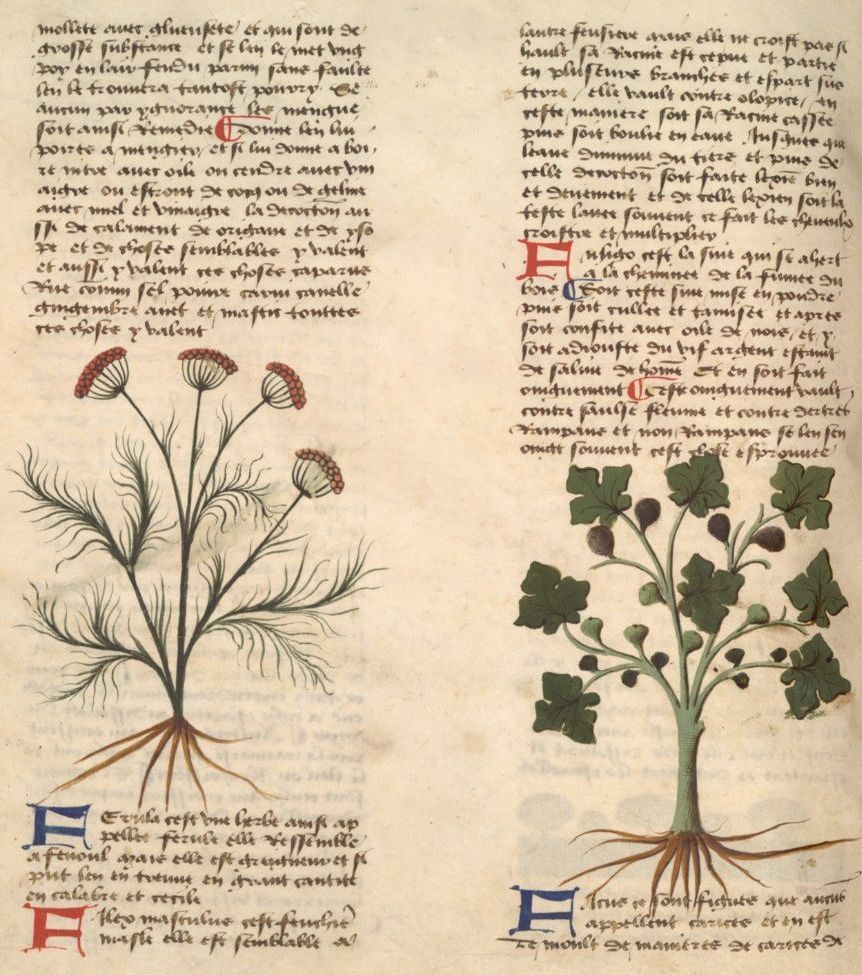 mollete avec glueusete et qui sont de
grosse substance et se len le met ung
poy en lair fendu parmi sans faulte
len le trouvera tantost pourry Se
aucun par ygnorance les mengue
soit ainsi Remedie donne len lui
poires a mengier et si lui donne a boi
re nitre avec oile ou cendre avec vin
aigre ou estront de cocq ou de geline
avec miel et vinaigre la decoction au
ssi de calament de origane et de yso
pe et de choses semblables y valent
et aussi y valent ces choses caparus
Rue comin sel poivre carui canelle
gingembre anet et mastic toutes
ces choses y valent
Erula cest une herbe ainsi ap
pellee ferule elle Ressemble
a fenoul mais elle est greigneur et si
put len en treuve en grant cantite
en calabre et cecile
Filex masculus cest feuchiere
masle elle est semblable a
lautre feusiere mais elle ne croist pas si
hault sa Racine est cepue et partie
en pluseurs branches et espart sus
terre elle vault contre olopice en
ceste maniere soit sa Racine cassee
puis soit boulie en eaue Jusques que
leaue diminue du tiers et puis de
celle decoction soit faite lexive bien
et deuement et de celle lexive soit la
teste lavee souvent ce fait les cheveulx
croistre et multiplier
Fuligo cest la suie qui se ahert
a la cheminee de la fumee du
bois Soit ceste suie mise en pouldre
puis soit cullee et tamisee et apres
soit confite avec oile de nois et y
soit adiouste du vif argent estaint
de salive de homme Et en soit fait
oniguement Cest oniguement vault
contre saulse fleume et contre dertres
Rampans et non Rampans se len sen
oingt souvent cest chose esprouvee
Ficus ce sont figues que aucus
appellent carices et en est
de moult de manieres de carices